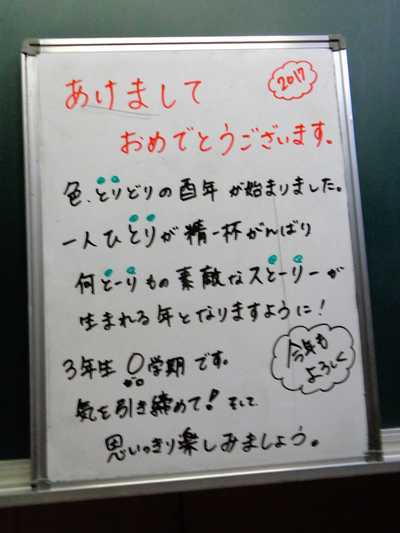 2017
あけまして
おめでとうございます。
色、とりどりの酉年が始まりました。
一人ひとりが精一杯がんばり
何とーりもの素敵なストーリーが
生まれる年となりますように!
3年生0学期です。
今年も
よろしく
気を引き締めて!そして
思いっきり楽しみましょう。